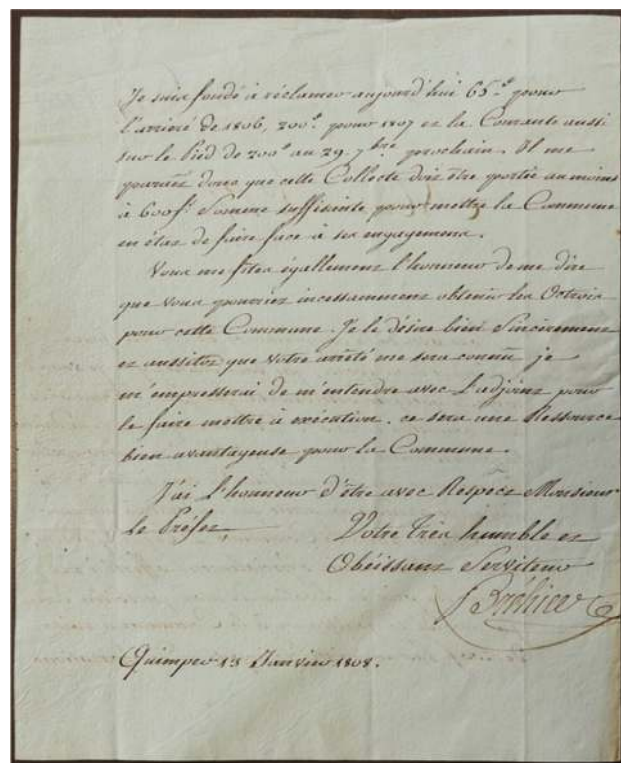 Je suis fondé à réclamer aujourd'hui 65.# pour
l'arriéré de 1806, 200.# pour 1807 et la Courante aussi
sur le pied de 200# au 29 7bre prochain. Il me
donc que cette Collecte doit être portée au moins
à 600f. Somme suffisante pour mettre la Commune
en état de faire face à ses engagemens.
Vous me fites égallement l'honneur de me dire
que vous pourriez incessamment obtenir les Octrois
pour cette Commune. Je le désire bien Sincèrement
et aussitot que votre arrêté me sera connu je
m'empresserai de m'entendre avec L'adjoint pour
le faire mettre à exécution. ce sera une Ressource
bien avantageuse pour la Commune.
J'ai l'honneur d'être avec Respect Monsieur
Le Préfet
Votre très humble et
Obéissant Serviteur
Bréhier
Quimper 13 Janvier 1808.